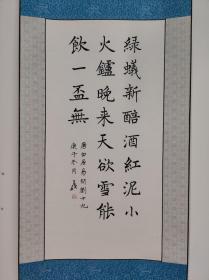 綠蟻新醅酒紅泥小
火鑪晚来天欲雪能
飲一盃無
唐白居易問劉十九
庚子冬月